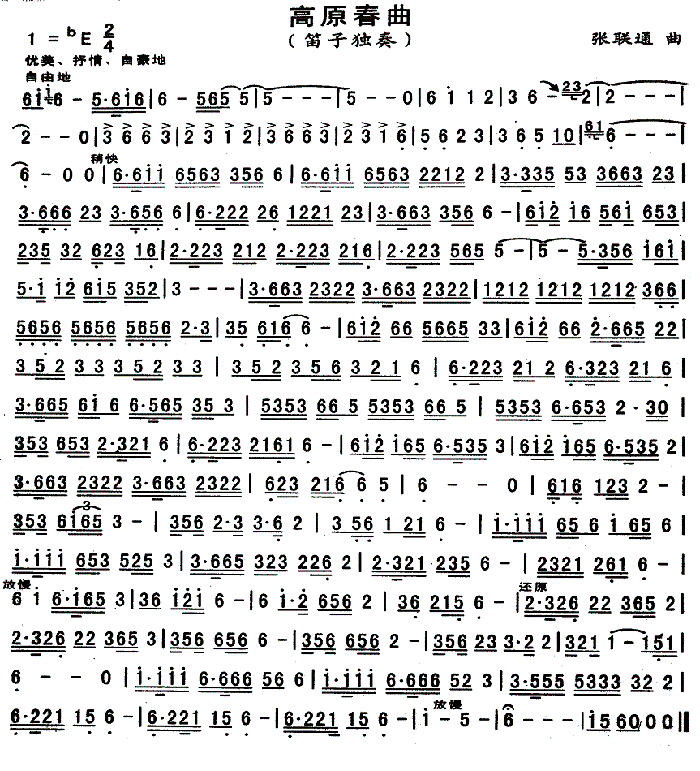 高原春曲
1 = ᵇE 2/4
(笛子独奏)
张联通 曲
优美、抒情、自豪地
自由地
6 i 6 - 5·6i6 | 6 - 565 5 | 5 - - - | 5 - - 0 | 6 i 1 2 | 3 6 - 23 2 | 2 - - - |
2 - - 0 | 3 6 6 3 | 2 3 1 2 | 3 6 6 3 | 2 3 1 6 | 5 6 2 3 | 3 6 5 10 | 61 6 - - - |
稍快
6 - 0 0 | 6·6ii 6563 356 6 | 6·6ii 6563 2212 2 | 3·335 53 3663 23 |
3·666 23 3·656 6 | 6·222 26 1221 23 | 3·663 356 6 - | 6i2 i6 56i 653 |
235 32 623 16 | 2·223 212 2·223 216 | 2·223 565 5 - | 5 - 5·356 i6i |
5·i i2 6i5 352 | 3 - - - | 3·663 2322 3·663 2322 | 1212 1212 1212 366 |
5656 5656 5656 2·3 | 35 616 6 - | 6i2 66 5665 33 | 6i2 66 2·665 22 |
3 5 2 3 3 3 5 2 3 3 | 3 5 2 3 5 6 3 2 1 6 | 6·223 21 2 6·323 21 6 |
3·665 6i 6 6·565 35 3 | 5353 66 5 5353 66 5 | 5353 6·653 2·30 |
353 653 2·321 6 | 6·223 2161 6 - | 6i2 i65 6·535 3 | 6i2 i65 6·535 2 |
3·663 2322 3·663 2322 | 623 216 6 5 | 6 - - 0 | 616 123 2 - |
353 6i65 3 - | 356 2·3 3·6 2 | 3 56 1 21 6 - | i·iii 65 6 i 65 6 |
3
i·iii 653 525 3 | 3·665 323 226 2 | 2·321 235 6 - | 2321 261 6 - |
放慢
还原
6 i 6·i65 3 | 36 i2i 6 - | 6 i·2 656 2 | 36 215 6 - | 2·326 22 365 2 |
2·326 22 365 3 | 356 656 6 - | 356 656 2 - | 356 23 3·2 2 | 321 1 - 151 |
6 - - 0 | i·iii 6·666 56 6 | i·iii 6·666 52 3 | 3·555 5333 32 2 |
放慢
6·221 15 6 - | 6·221 15 6 - | 6·221 15 6 - | i - 5 - | 6 - - - | i5600 0 ‖